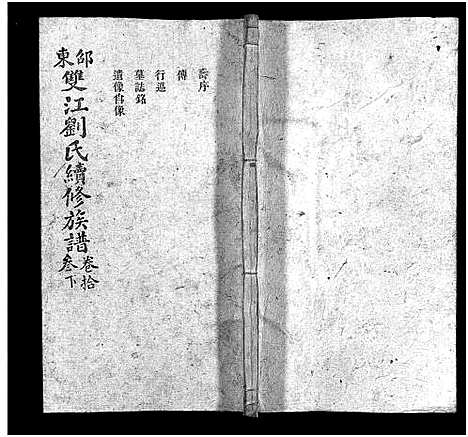 壽序
傳
行述
墓誌銘
遺像肖像
邵東
雙江劉氏續修族譜
卷拾叁下